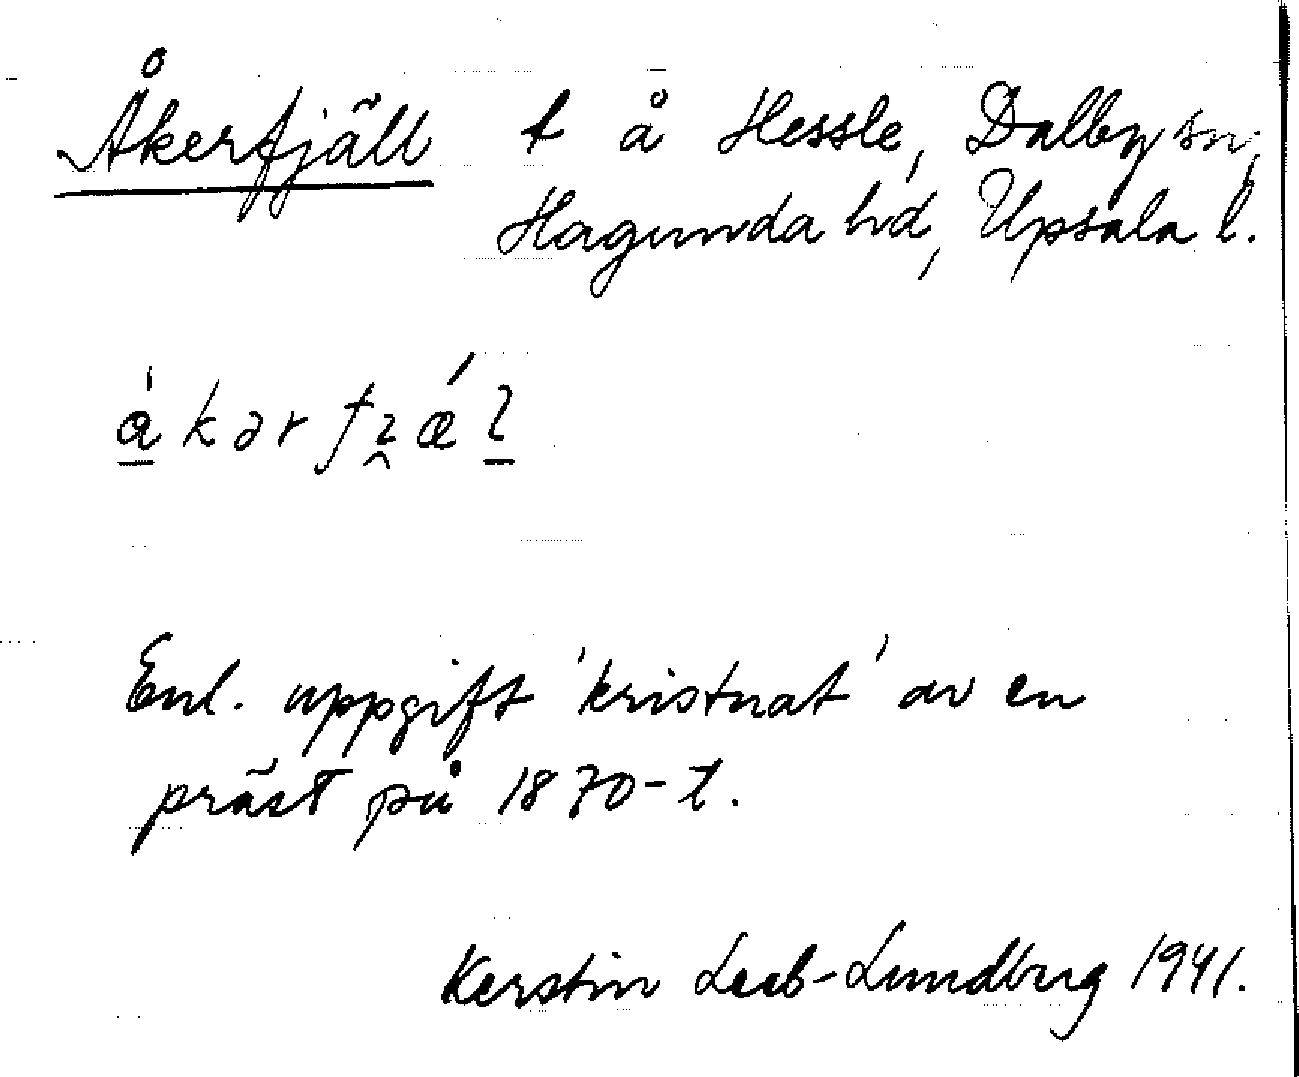 Åkerfjäll t å Hessle, Dalby sn,
Hagunda hd, Upsala l.
Enl. uppgift 'kristnat' av en
präst på 1870-t.
Kerstin Leeb-Lundberg 1941.